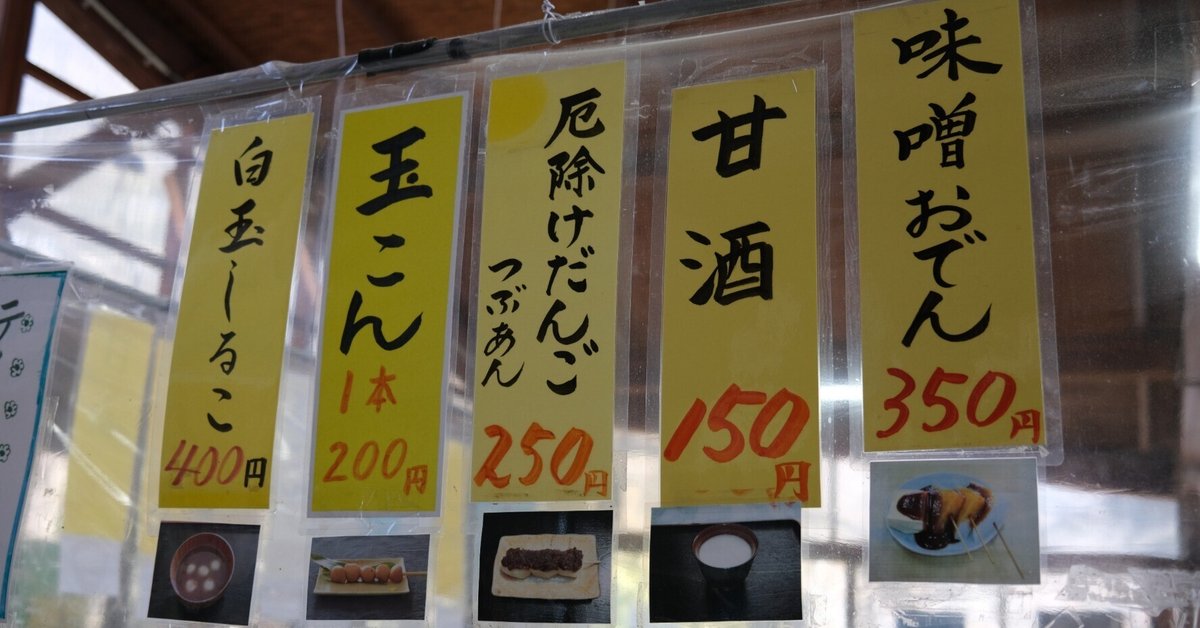 味噌おでん
350円
甘酒
150円
厄除けだんご
つぶあん
250円
玉こん
1本
200円
白玉しるこ
400円
テ